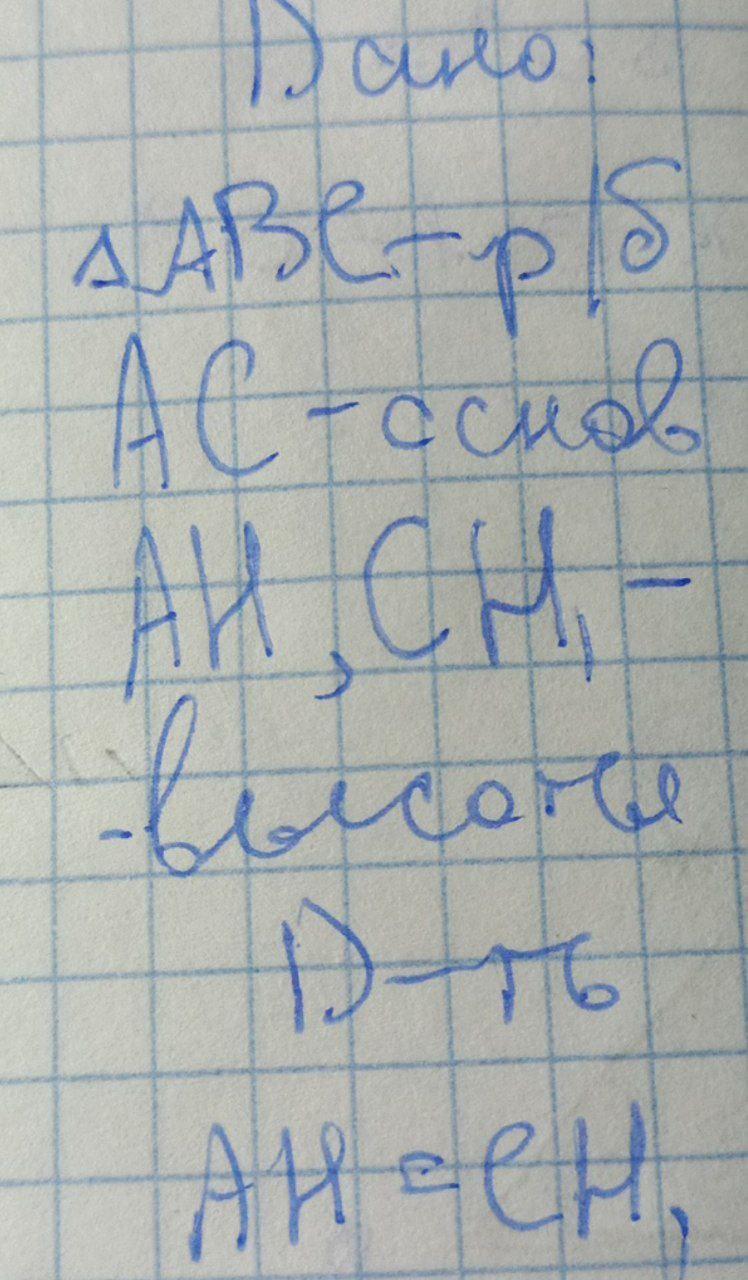 Дано:
△ABC - р/б
AC - основ
AH, CH₁ -
- высоты
D - ть
AH = CH₁